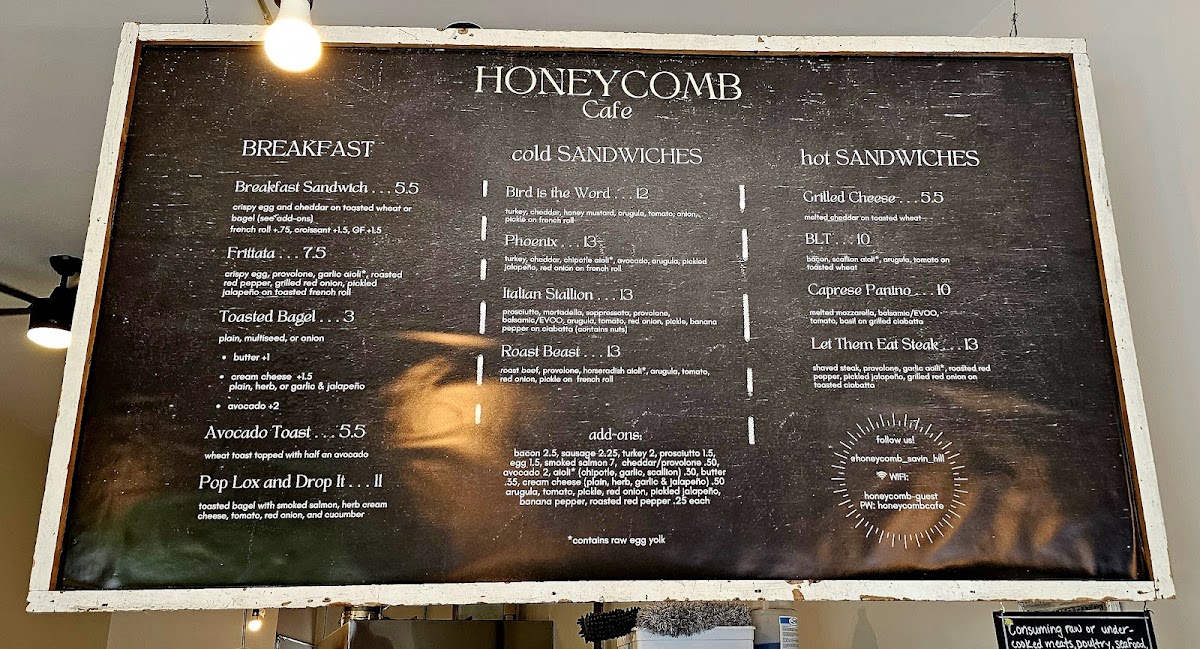 HONEYCOMB
Cafe
BREAKFAST
Breakfast Sandwich . . . 5.5
crispy egg and cheddar on toasted wheat or
bagel (see add-ons)
french roll +.75, croissant +1.5, GF +1.5
Frittata . . . 7.5
crispy egg, provolone, garlic aioli*, roasted
red pepper, grilled red onion, pickled
jalapeño on toasted french roll
Toasted Bagel . . . 3
plain, multiseed, or onion
• butter +1
• cream cheese +1.5
plain, herb, or garlic & jalapeño
• avocado +2
Avocado Toast . . . 5.5
wheat toast topped with half an avocado
Pop Lox and Drop It . . . 11
toasted bagel with smoked salmon, herb cream
cheese, tomato, red onion, and cucumber
cold SANDWICHES
Bird is the Word . . . 12
turkey, cheddar, honey mustard, arugula, tomato, onion,
pickle on french roll
Phoenix . . . 13
turkey, cheddar, chipotle aioli*, avocado, arugula, pickled
jalapeño, red onion on french roll
Italian Stallion . . . 13
prosciutto, mortadella, soppressata, provolone,
balsamic/EVOO, arugula, tomato, red onion, pickle, banana
pepper on ciabatta (contains nuts)
Roast Beast . . . 13
roast beef, provolone, horseradish aioli*, arugula, tomato,
red onion, pickle on french roll
add-ons:
bacon 2.5, sausage 2.25, turkey 2, prosciutto 1.5,
egg 1.5, smoked salmon 7, cheddar/provolone .50,
avocado 2, aioli* (chipotle, garlic, scallion) .30, butter
.35, cream cheese (plain, herb, garlic & jalapeño) .50
arugula, tomato, pickle, red onion, pickled jalapeño,
banana pepper, roasted red pepper .25 each
*contains raw egg yolk
hot SANDWICHES
Grilled Cheese . . . 5.5
melted cheddar on toasted wheat
BLT . . . 10
bacon, scallion aioli*, arugula, tomato on
toasted wheat
Caprese Panino . . . 10
melted mozzarella, balsamic/EVOO,
tomato, basil on grilled ciabatta
Let Them Eat Steak . . . 13
shaved steak, provolone, garlic aoili*, roasted red
pepper, pickled jalapeño, grilled red onion on
toasted ciabatta
follow us!
@honeycomb_savin_hill
WIFI:
honeycomb-guest
PW: honeycombcafe
Consuming raw or under-
cooked meats, poultry, seafood,